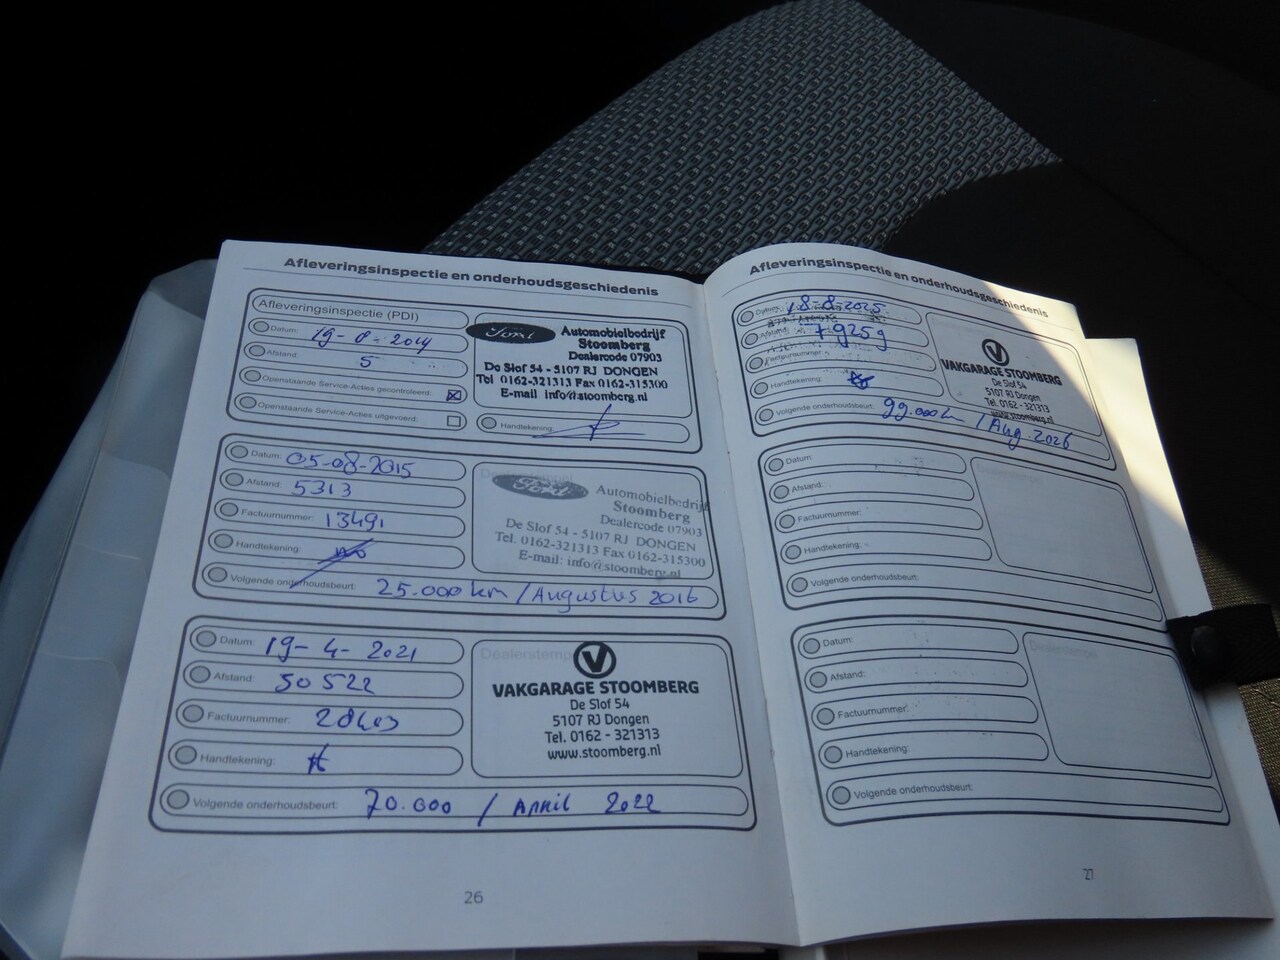 Afleveringsinspectie en onderhoudsgeschiedenis
Afleveringsinspectie (PDI)
Datum: 19-8-2014
Afstand: 5
Openstaande Service-Acties gecontroleerd:
Openstaande Service-Acties uitgevoerd:
Ford
Automobielbedrijf
Stoomberg
Dealercode 07903
De Slof 54 - 5107 RJ DONGEN
Tel 0162-321313 Fax 0162-315300
E-mail info@stoomberg.nl
Handtekening:
Datum: 05-08-2015
Afstand: 5313
Factuurnummer: 13491
Handtekening:
Volgende onderhoudsbeurt: 25.000 km / Augustus 2016
Dealerstempel
Ford
Automobielbedrijf
Stoomberg
Dealercode 07903
De Slof 54 - 5107 RJ DONGEN
Tel. 0162-321313 Fax 0162-315300
E-mail: info@stoomberg.nl
Datum: 19-4-2021
Afstand: 50522
Factuurnummer:
Handtekening:
Volgende onderhoudsbeurt: 70.000 / April 2022
Dealerstempe
VAKGARAGE STOOMBERG
De Slof 54
5107 RJ Dongen
Tel. 0162 - 321313
www.stoomberg.nl
26
Afleveringsinspectie en onderhoudsgeschiedenis
Datum: 18-8-2025
Afstand: 79259
Factuurnummer:
Handtekening:
Volgende onderhoudsbeurt: 99.000 km / Aug. 2026
VAKGARAGE STOOMBERG
De Slof 54
5107 RJ Dongen
Tel. 0162 - 321313
www.stoomberg.nl
Datum:
Afstand:
Factuurnummer:
Handtekening:
Volgende onderhoudsbeurt:
Datum:
Afstand:
Factuurnummer:
Handtekening:
Volgende onderhoudsbeurt:
27